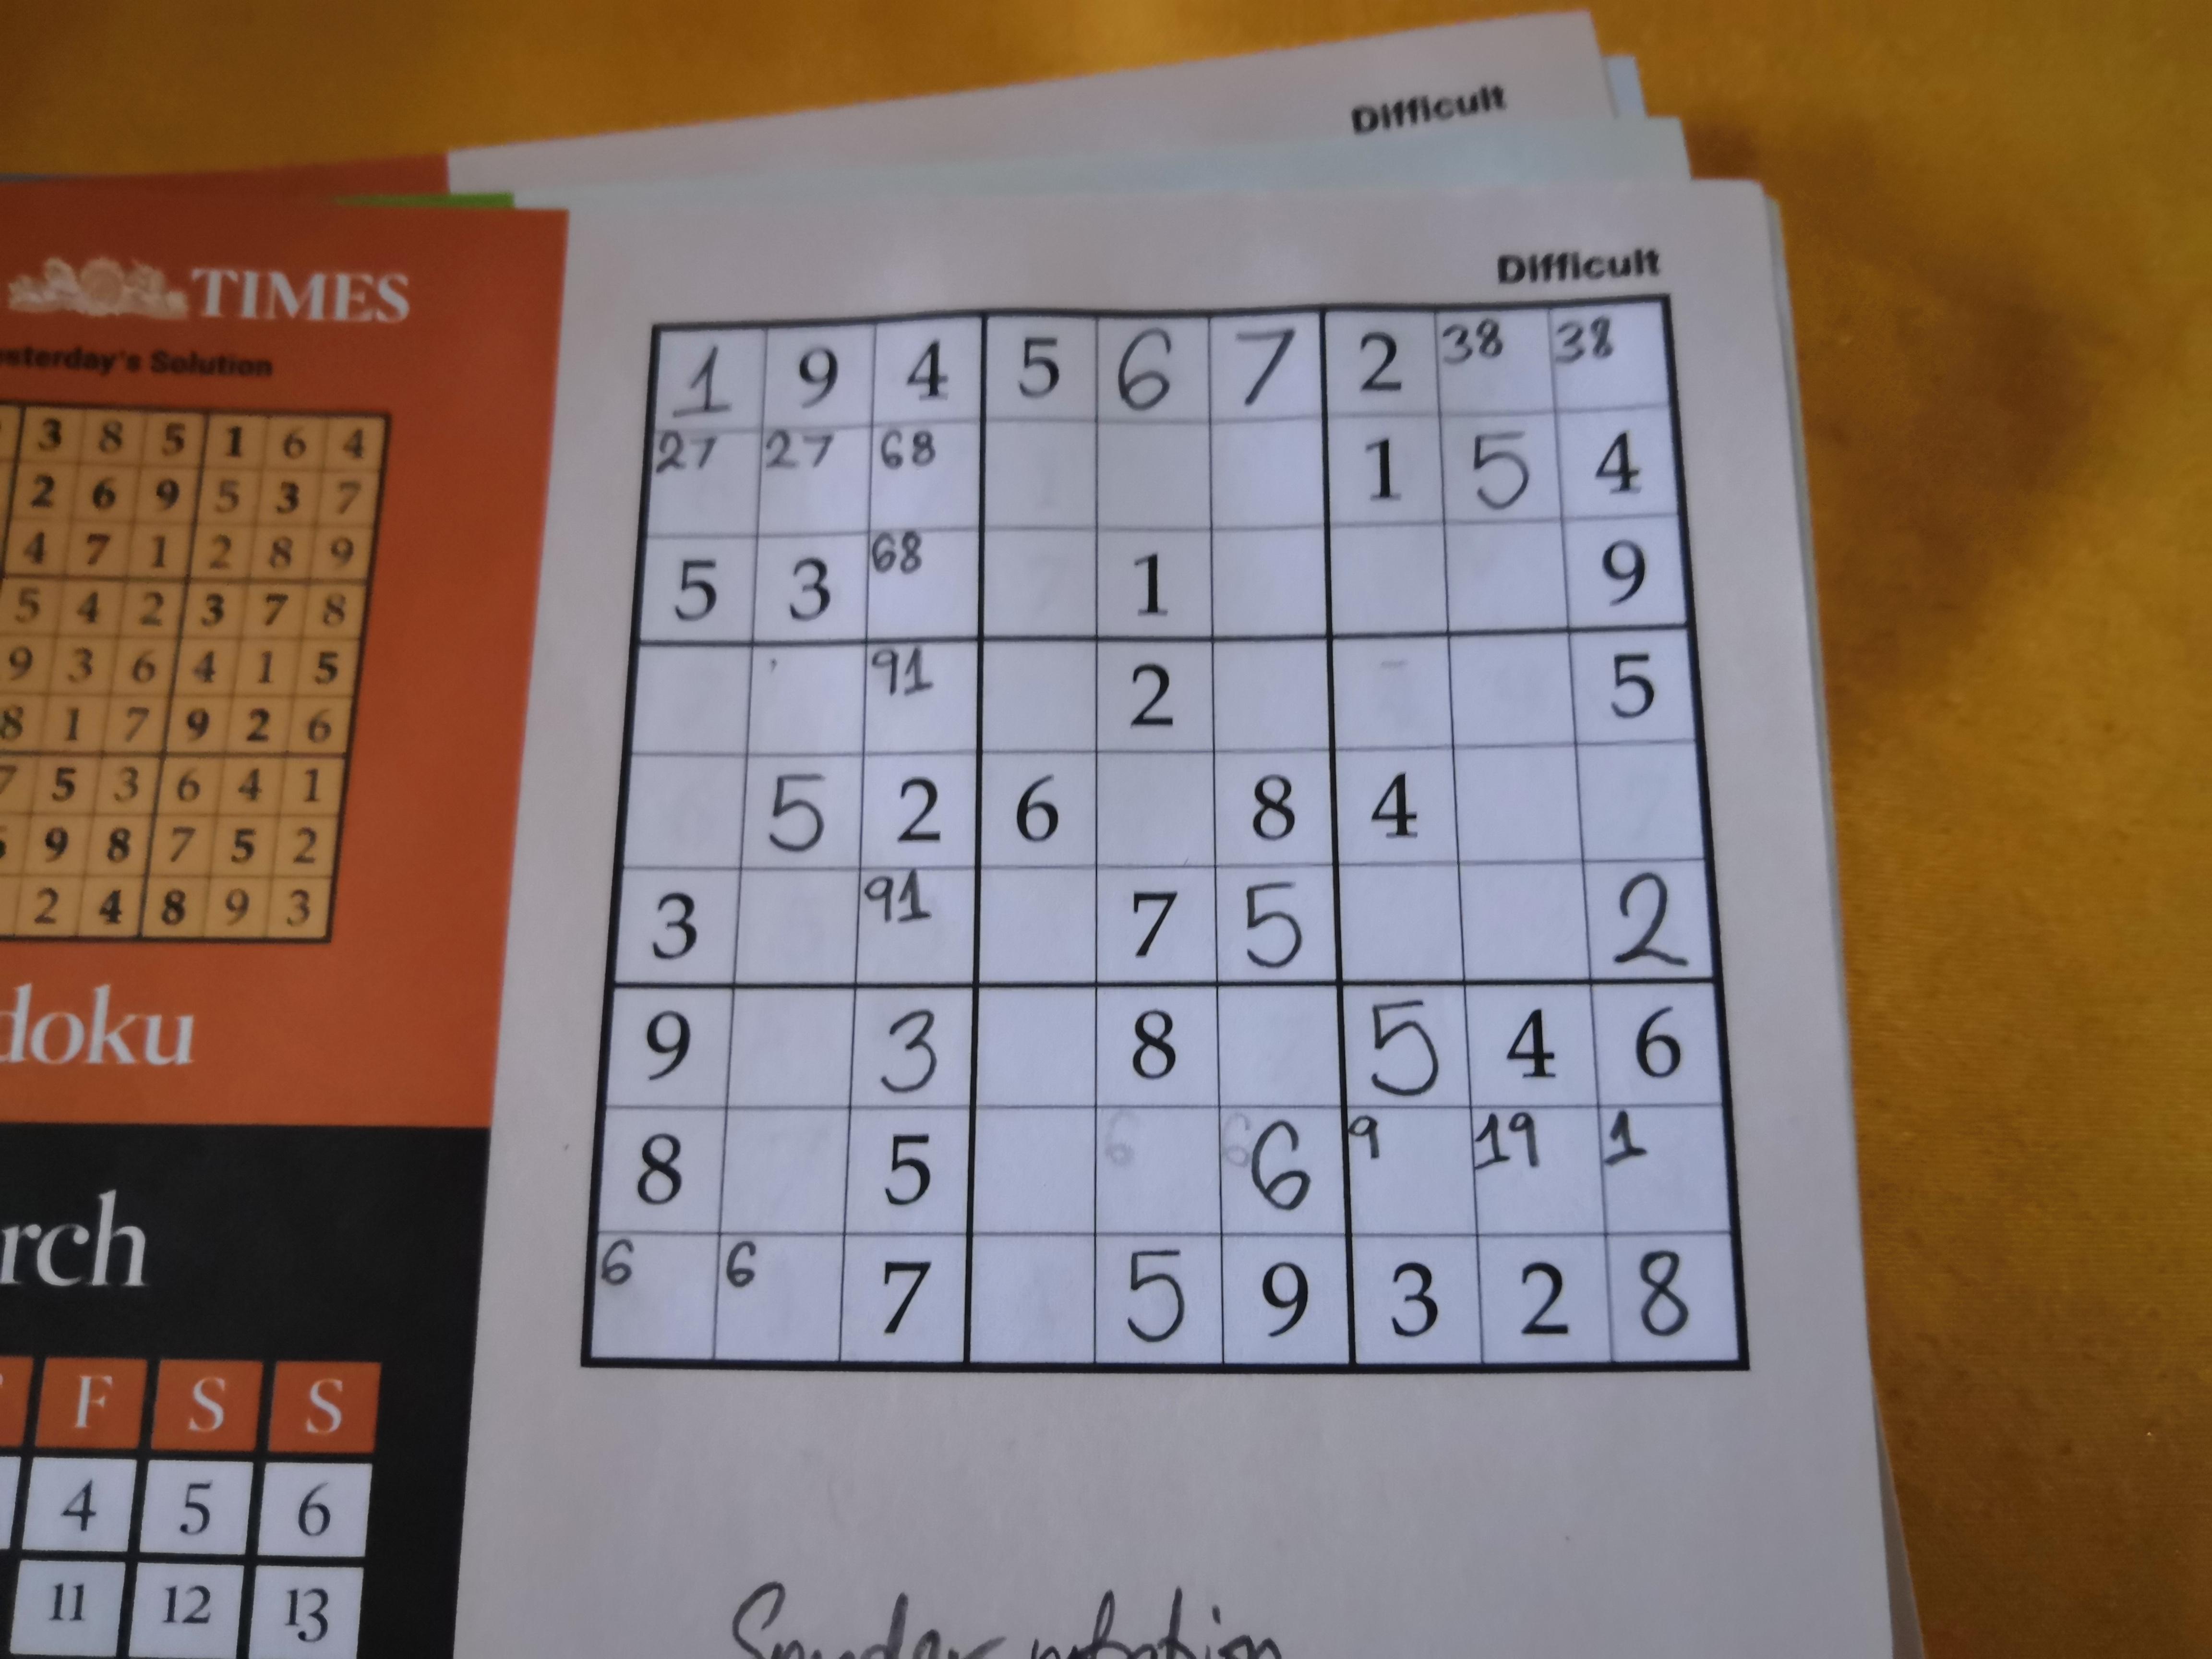 Difficult
Difficult
TIMES
esterday's Solution
3 8 5 1 6 4
2 6 9 5 3 7
4 7 1 2 8 9
5 4 2 3 7 8
9 3 6 4 1 5
8 1 7 9 2 6
7 5 3 6 4 1
9 8 7 5 2
2 4 8 9 3
doku
rch
F S S
4 5 6
11 12 13
1 9 4 5 6 7 2 38 38
27 27 68 1 5 4
5 3 68 1 9
91 2 5
5 2 6 8 4
3 91 7 5 2
9 3 8 5 4 6
8 5 6 6 6 9 19 1
6 6 7 5 9 3 2 8
notation